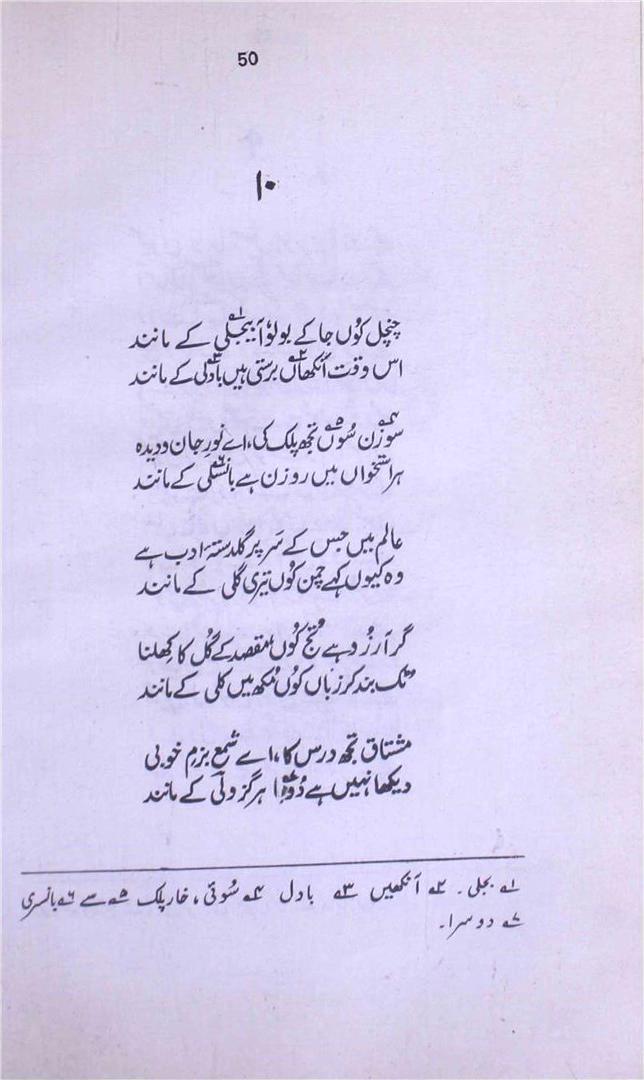 50
۱۰
چنچل کوُں جا کے بولو آ بیجلی۱؎ کے مانند
اس وقت اَنکھاں۲؎ برستی ہیں بادلی۳؎ کے مانند
سوزَن۴؎ سُوں۵؎ تجھ پلک کی، اے نورِ جان و دیدہ
ہر استخواں میں روزن ہے بانسلی۶؎ کے مانند
عالم میں جس کے سَر پر گلدستۂ ادب ہے
وہ کیوں کہے چمن کوُں تیری گلی کے مانند
گر آرزُو ہے تُج کوُں، مقصد کے گُل کا کھِلنا
ٹُک بند کر زباں کوُں مُکھ میں کلی کے مانند
مشتاق تجھ درس کا، اے شمعِ بزمِ خوبی
دیکھا نہیں ہے دُوجا۷؎ ہرگز ولیؔ کے مانند
۱؎ بجلی۔ ۲؎ آنکھیں ۳؎ بادل ۴؎ سُوئی، خارِ پلک ۵؎ سے ۶؎ بانسری
۷؎ دوسرا۔